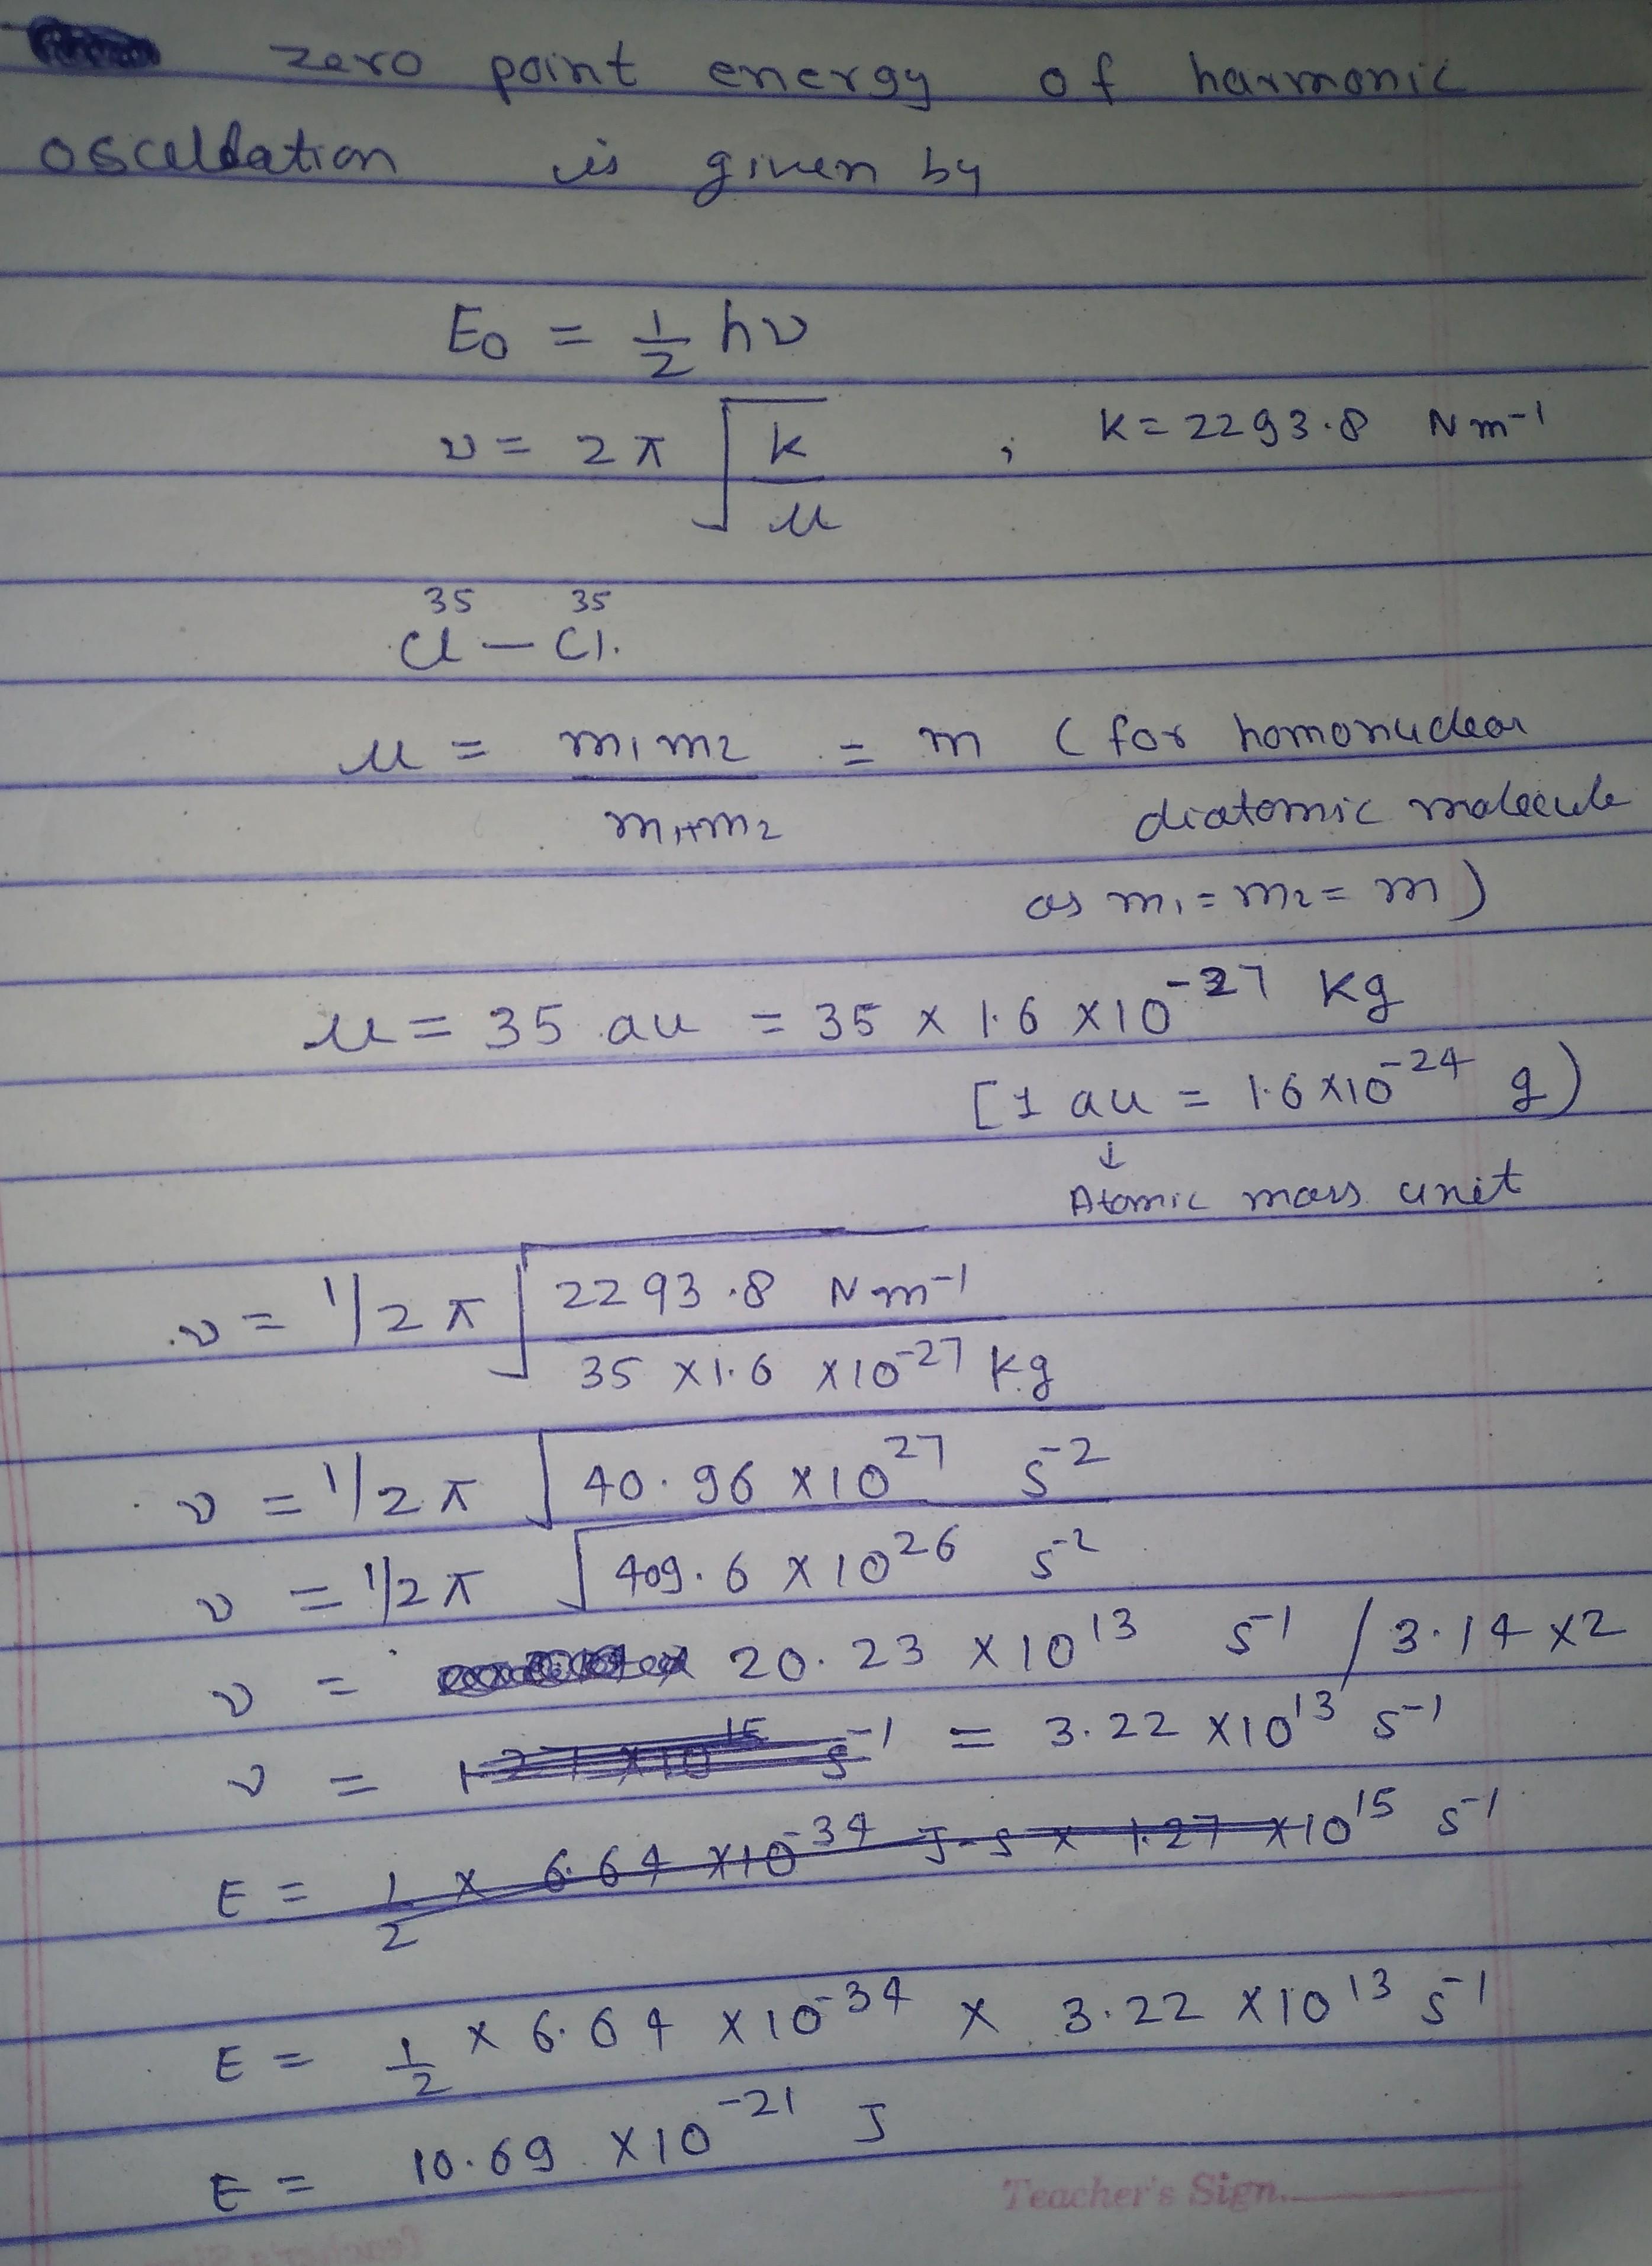 zero point energy of harmonic
osceldation is given by
E0 = 1/2 hν
ν = 2π √(k/μ) ; K = 2293.8 Nm-1
35 35
Cl – Cl.
μ = m1m2/m1+m2 = m (for homonuclear
diatomic molecule
as m1 = m2 = m)
μ = 35 au = 35 x 1.6 x10-27 Kg
[1 au = 1.6x10-24 g)
↓
Atomic mass unit
ν = 1/2π √(2293.8 Nm-1 / 35 x1.6 x10-27 Kg)
ν = 1/2π √(40.96 x1027 s-2)
ν = 1/2π √(409.6 x1026 s-2)
ν = 20.23 x1013 s-1 / 3.14 x2
ν = 1.27 x1015 s-1 = 3.22 x1013 s-1
E = 1/2 x 6.64 x10-34 J-s x 1.27 x1015 s-1
E = 1/2 x 6.64 x10-34 x 3.22 x1013 s-1
E = 10.69 x10-21 J
Teacher's Sign.